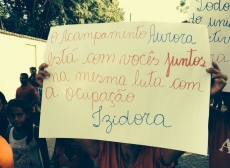 O Acampamento Aurora
está com vocês juntos
na mesma luta com
a ocupação
Izidora
Todo
do uni